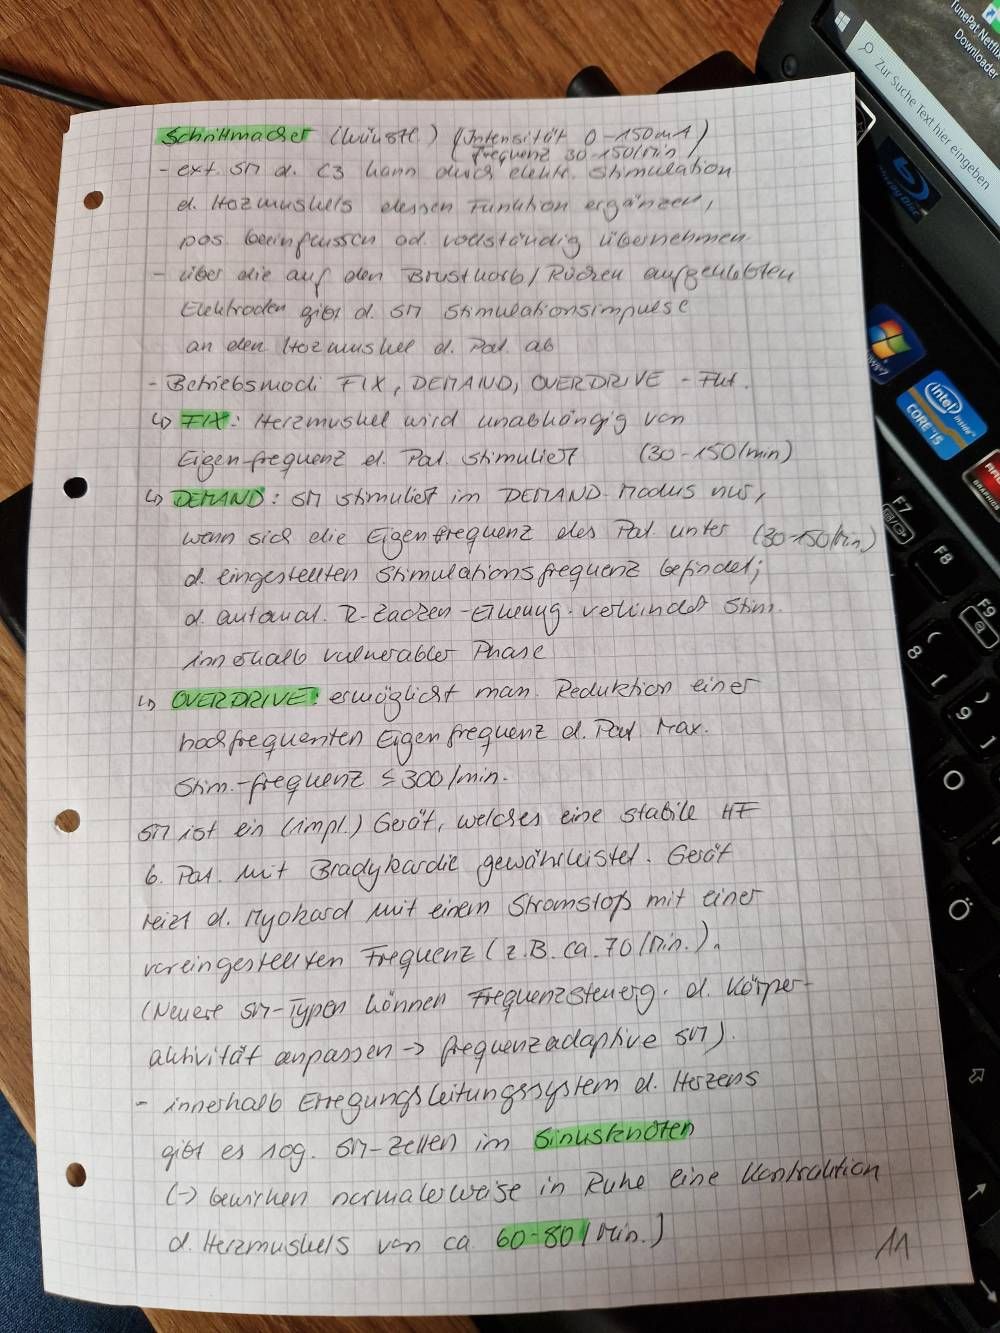 Schrittmacher (künstl.) (Intensität 0-150mA)
(Frequenz 30-150/min)
- ext. SM d. C3 kann durch elektr. Stimulation
d. Herzmuskels dessen Funktion ergänzen,
pos. beeinflussen od. vollständig übernehmen.
- über die auf den Brustkorb/Rücken aufgeklebten
Elektroden gibt d. SM Stimulationsimpulse
an den Herzmuskel d. Pat. ab
- Betriebsmodi FIX, DEMAND, OVERDRIVE -
↳ FIX: Herzmuskel wird unabhängig von
Eigenfrequenz d. Pat. stimuliert (30-150/min)
↳ DEMAND: SM stimuliert im DEMAND-Modus nur,
wenn sich die Eigenfrequenz des Pat. unter (30-150/Min.)
d. eingestellten Stimulationsfrequenz befindet;
d. automat. R-Zacken-Erkenng. verhindert Stim.
innerhalb vulnerabler Phase
↳ OVERDRIVE: ermöglicht man. Reduktion einer
hochfrequenten Eigenfrequenz d. Pat. Max.
Stim.-frequenz ≤ 300/min.
SM ist ein (impl.) Gerät, welches eine stabile HF
b. Pat. mit Bradykardie gewährleistet. Gerät
reizt d. Myokard mit einem Stromstoß mit einer
voreingestellten Frequenz (z.B. ca. 70/Min.).
(Neuere SM-Typen können Frequenzsteuerg. d. Körper-
aktivität anpassen → frequenzadaptive SM).
- innerhalb Erregungsleitungssystem d. Herzens
gibt es sog. SM-Zellen im Sinusknoten
(→ bewirken normalerweise in Ruhe eine Kontraktion
d. Herzmuskels von ca. 60-80/Min.)
11
TunePat Netflix
Downloader
Zur Suche Text hier eingeben
Blu-ray Disc
Windows 7
intel inside
CORE i5
GRAPHICS
F7
F8
F9
( 8 [
) 9 ]
O
Ö